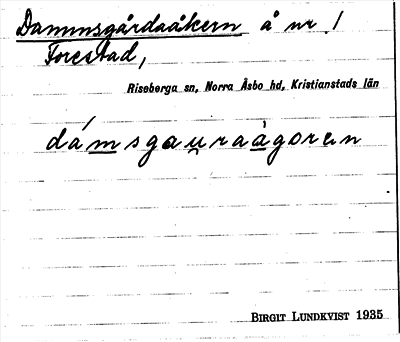 Dammsgårdaåkern å nr 1
Forestad,
Riseberga sn, Norra Åsbo hd, Kristianstads län
dámsgauraågoren
BIRGIT LUNDKVIST 1935